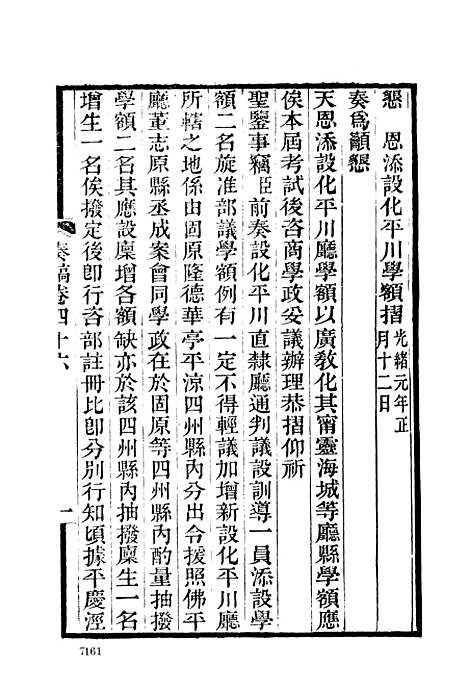 懇　恩添設化平川學額摺光緒元年正月十二日
奏爲籲懇
天恩添設化平川廳學額以廣教化其甯靈海城等廳縣學額應
俟本屆考試後咨商學政妥議辦理恭摺仰祈
聖鑒事竊臣前奏設化平川直隸廳通判議設訓導一員添設學
額二名旋准部議學額例有一定不得輕議加增新設化平川廳
所轄之地係由固原隆德華亭平涼四州縣內分出令援照佛平
廳董志原縣丞成案會同學政在於固原等四州縣內酌量抽撥
學額二名其應設廩增各額缺亦於該四州縣內抽撥廩生一名
增生一名俟撥定後卽行咨部註冊比卽分別行知頃據平慶涇
奏稿卷四十六
一
7161